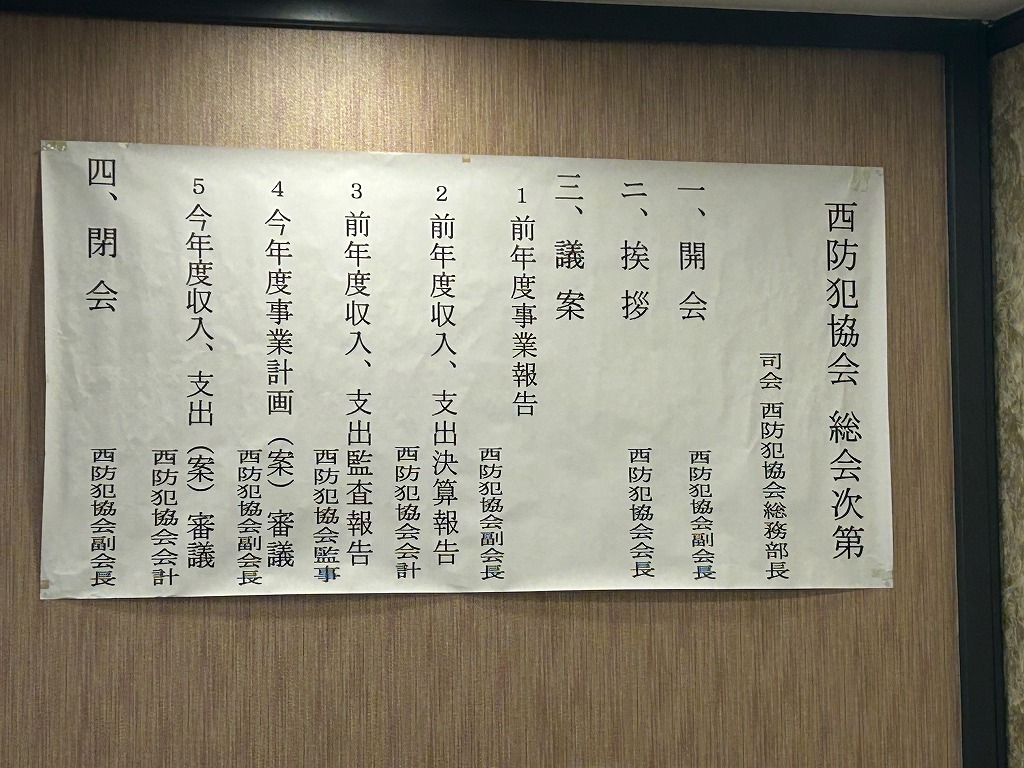 西防犯協会 総会次第
司会 西防犯協会総務部長
一、開会
西防犯協会副会長
二、挨拶
西防犯協会会長
三、議案
1 前年度事業報告
西防犯協会副会長
2 前年度収入、支出決算報告
西防犯協会会計
3 前年度収入、支出監査報告
西防犯協会監事
4 今年度事業計画（案）審議
西防犯協会副会長
5 今年度収入、支出（案）審議
西防犯協会会計
四、閉会
西防犯協会副会長